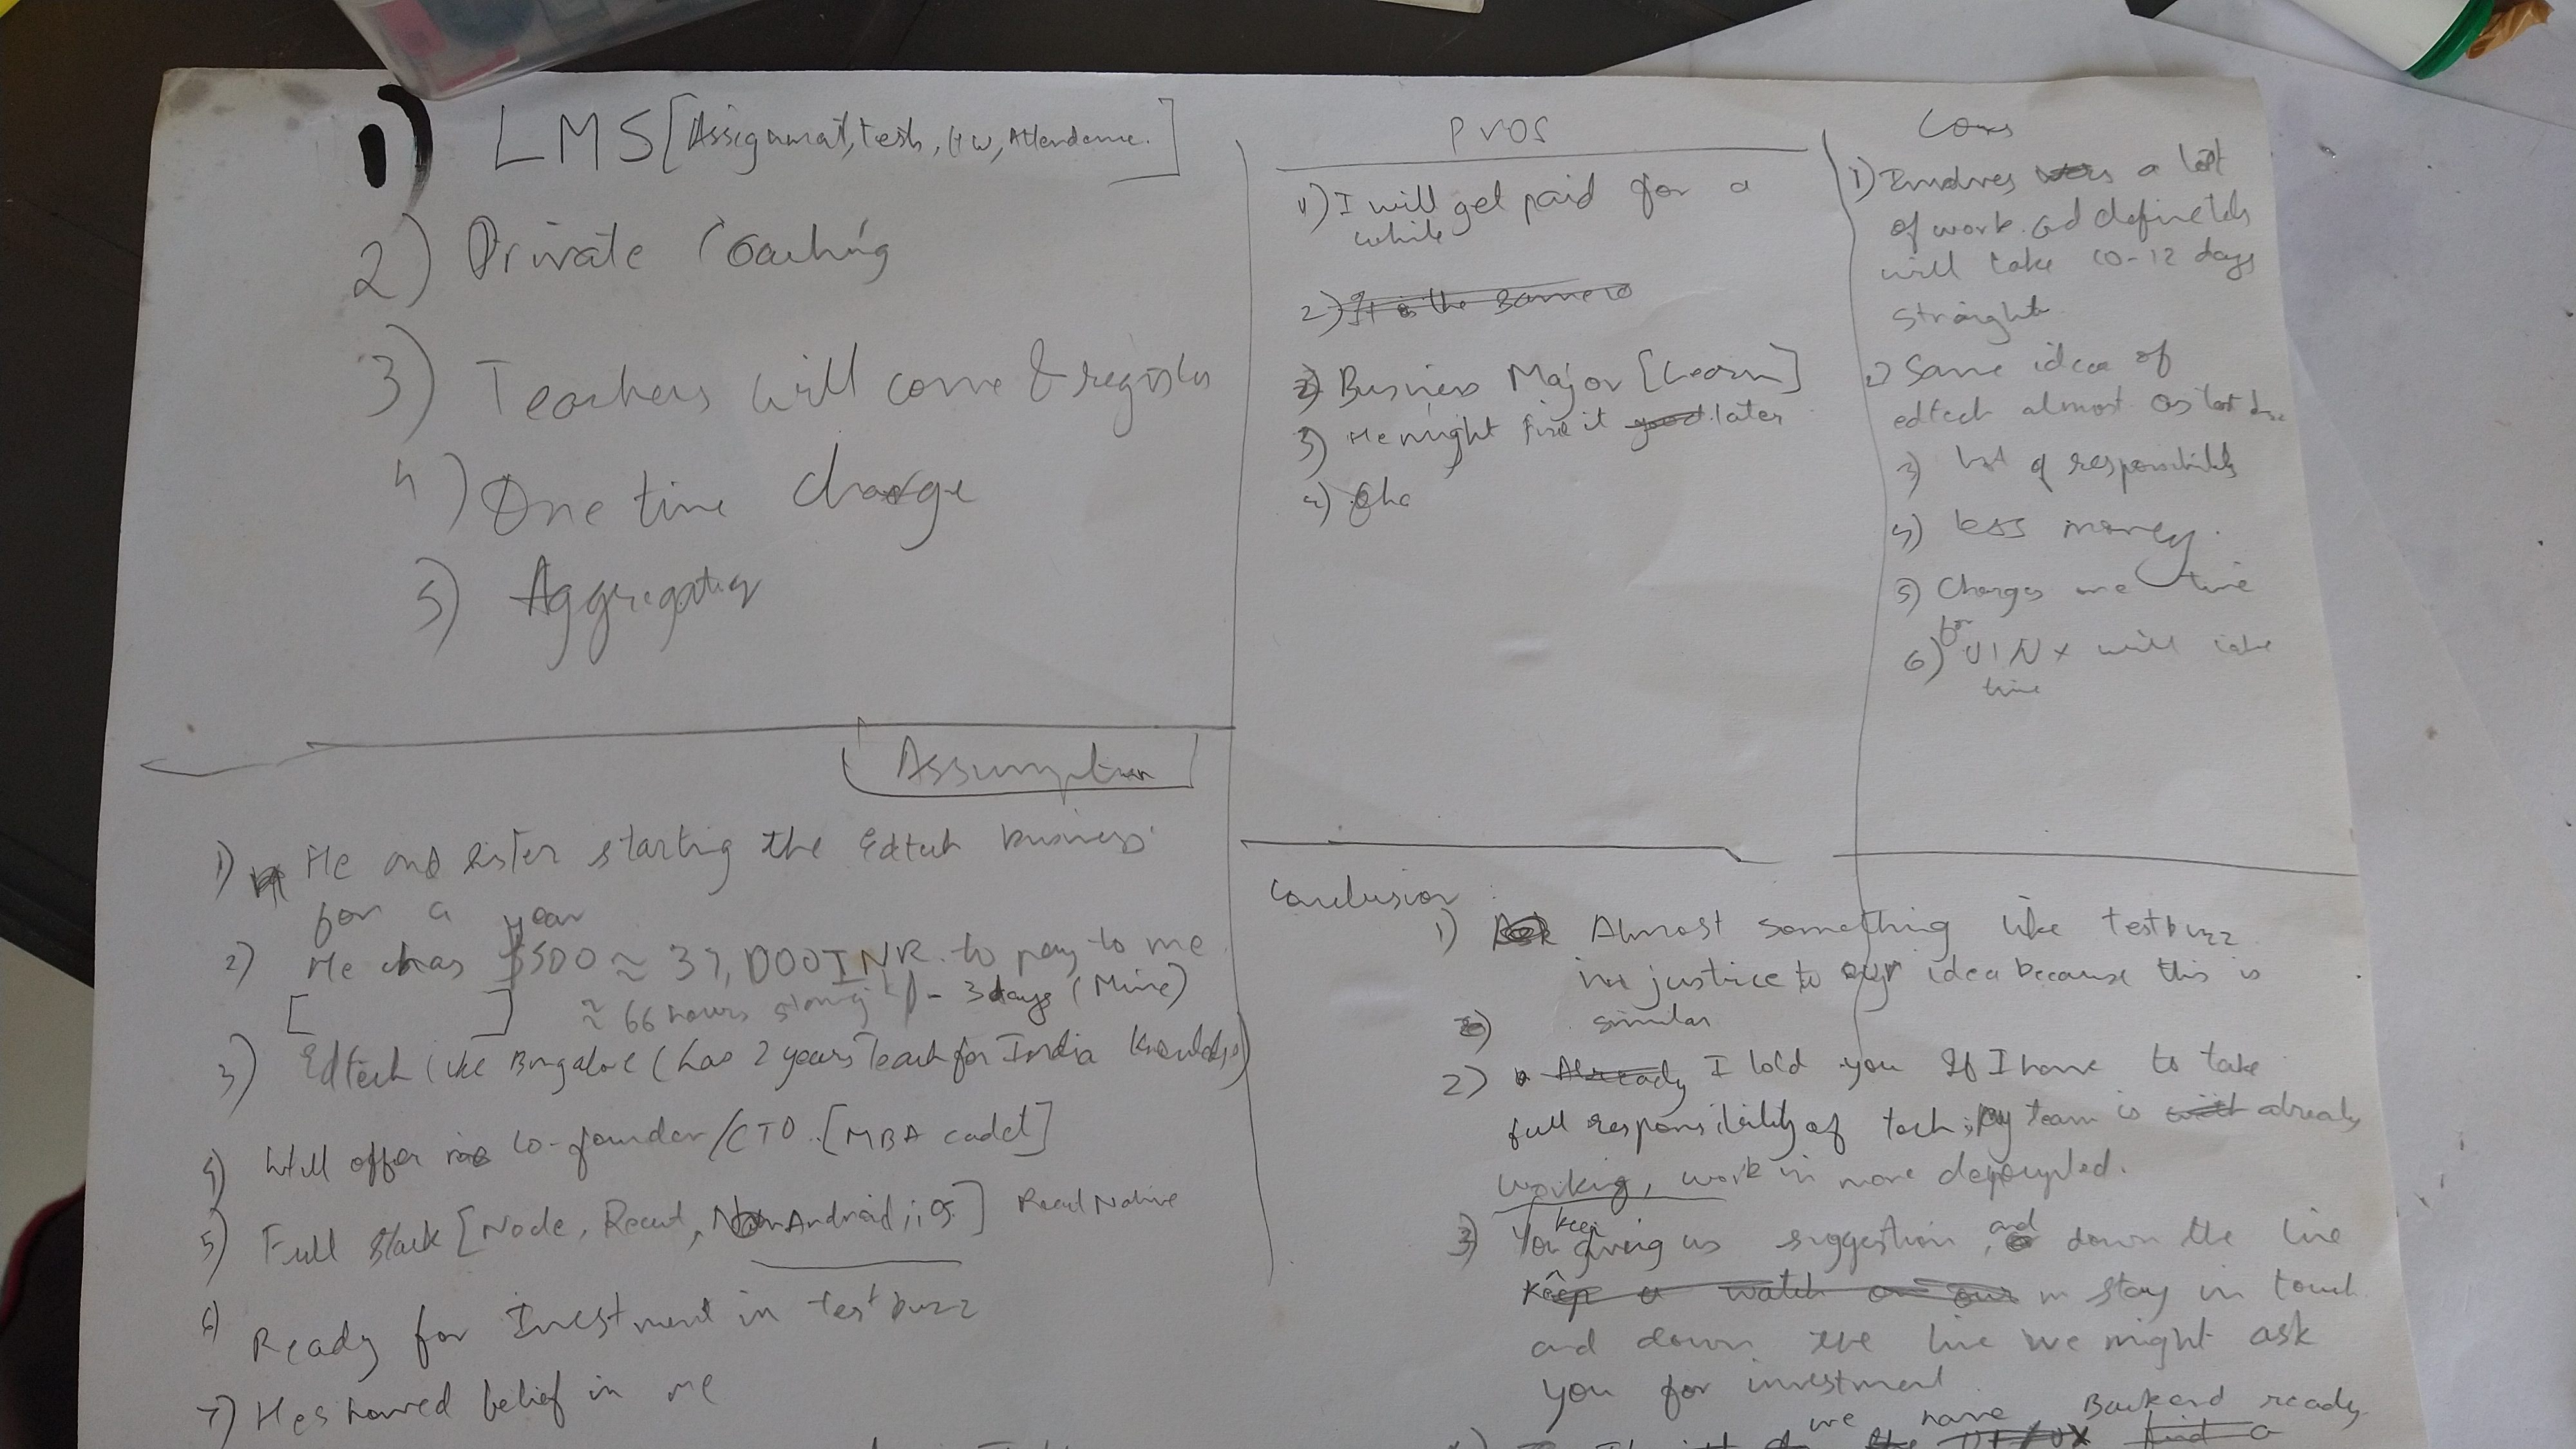 1) LMS [Assignmat, test, HW, Attendance.]
2) Private Coaching
3) Teachers will come & register
4) One time charge
5) Aggregating
Pros
1) I will get paid for a
while
2) It is the same
2) Business Major [Learn]
3) He might fire it good later
4) Cha
Cons
1) Involves a lot
of work and definetely
will take 10-12 days
straight
2) Same idea of
edtech almost as
3) lot of responsibility
4) less money.
5) Charges one time
6) for UI/Ux will take
time
Assumption
1) He and sister starting the Edtech business
for a year
2) He has $500 ≈ 37,000 INR to pay to me
[ ] ≈ 66 hours - 3 days (Mine)
3) Edtech like Bangalore (has 2 years Teach for India knowledge)
4) Will offer me co-founder/CTO [MBA cadet]
5) Full stack [Node, React, Android, iOS] React Native
6) Ready for Investment in testbuzz
7) He showed belief in me
Conclusion:
1) Almost something like testbuzz
injustice to our idea because this is
similar
2) Already I told you If I have to take
full responsibility of tech, my team is already
working, work in more decoupled.
3) You keep giving us suggestion, and down the line
keep a watch on our stay in touch
and down the line we might ask
you for investment
we have Backend ready